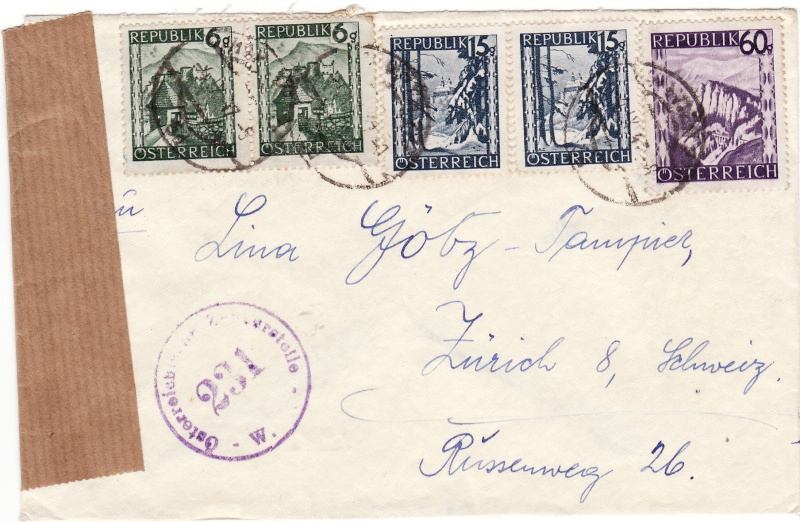 REPUBLIK 6g
ÖSTERREICH
REPUBLIK 6g
ÖSTERREICH
REPUBLIK 15g
ÖSTERREICH
REPUBLIK 15g
ÖSTERREICH
REPUBLIK 60g
ÖSTERREICH
Lina Götz-Tampier,
Zürich 8, Schweiz.
Russenweg 26.
Österreichische Zensurstelle
231
- W. -